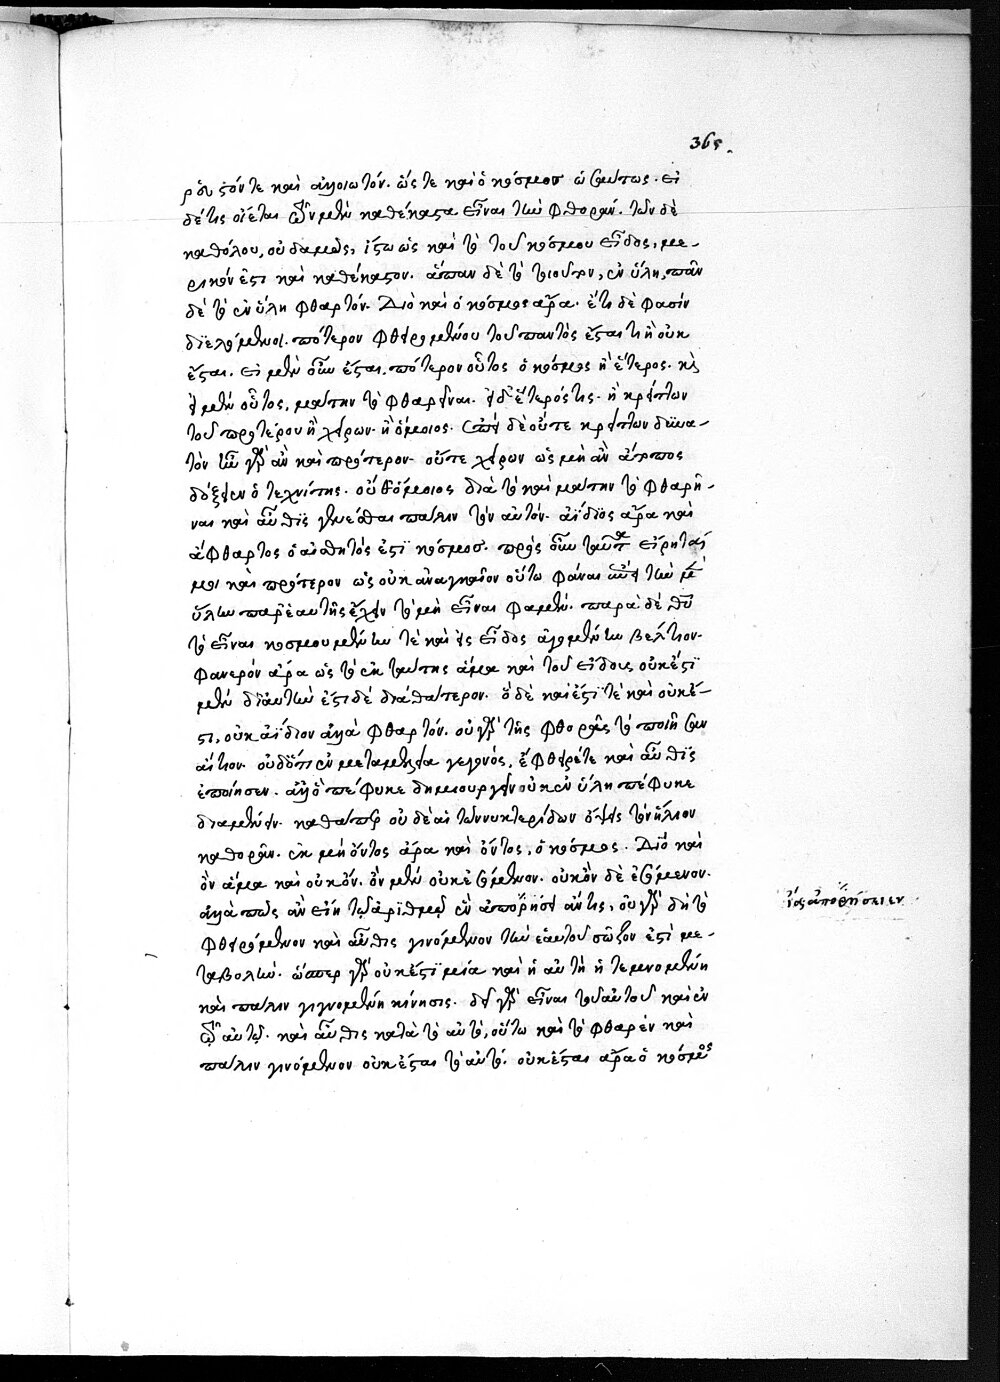 365.
ῥευστόν τε καὶ ἀλλοιωτόν. ὥς τε καὶ ὁ κόσμος ὡσαύτως. εἰ
δέ τις οἴεται τῶν μὲν καθέκαστα εἶναι τὴν φθοράν. τῶν δὲ
καθόλου, οὐδαμῶς, ἴστω ὡς καὶ τὸ τοῦ κόσμου εἶδος, με-
ρικόν ἐστι καὶ καθέκαστον. ἅπαν δὲ τὸ τοιοῦτον, ἐν ὕλῃ, πᾶν
δὲ τὸ ἐν ὕλῃ φθαρτόν. Διὸ καὶ ὁ κόσμος ἄρα. ἔτι δὲ φασὶν
διελόμενοι. πότερον φθειρομένου τοῦ παντὸς ἔσται τι ἢ οὐκ
ἔσται. εἰ μὲν οὖν ἔσται, πότερον οὗτος ὁ κόσμος ἢ ἕτερος. καὶ
εἰ μὲν οὗτος, μάτην τὸ φθαρῆναι. εἰ δ' ἕτερός τις. ἢ κρείττων
τοῦ προτέρου ἢ χείρων. ἢ ὅμοιος. ἀλλὰ δὲ οὔτε κρείττων δυνα-
τὸν ἦν γὰρ ἂν καὶ πρότερον. οὔτε χείρων ὡς μὴ ἂν ἄτοπος
δόξειεν ὁ τεχνίτης. οὔθ' ὅμοιος διὰ τὸ καὶ μάτην τὸ φθαρῆ-
ναι καὶ αὖθις γενέσθαι πάλιν τὸν αὐτόν. ἀΐδιος ἄρα καὶ
ἄφθαρτος ὁ αἰσθητός ἐστι κόσμος. πρὸς οὖν ταῦτα εἴρηταί
μοι καὶ πρότερον ὡς οὐκ ἀναγκαῖον οὕτω φάναι αὐτὴν τὴν μὲν
ὕλην παρ' ἑαυτῆς ἔχειν τὸ μὴ εἶναι φαμέν. παρὰ δὲ θεοῦ
τὸ εἶναι κοσμουμένην τε καὶ εἰς εἶδος ἀγομένην βέλτιον.
φανερόν ἄρα ὡς τὸ ἐκ ταύτης ἅμα καὶ τοῦ εἴδους οὐκ ἔστι
μὲν δι' αὐτὴν ἔστι δὲ διὰ θάτερον. ὃ δὲ καὶ ἔστι τὲ καὶ οὐκ ἔ-
στι, οὐκ ἀΐδιον ἀλλὰ φθαρτόν. οὐ γὰρ τῆς φθορᾶς τὸ ποιῆσαν
αἴτιον. οὐδ' ὅτι ἐν μεταμελείᾳ γεγονός, ἔφθειρέ τε καὶ αὖθις
ἐποίησεν. ἀλλ' ὃ πέφυκε δημιουργεῖν οὐκ ἐν ὕλῃ πέφυκε
διαμένειν. καθάπερ οὐδὲ αἱ τῶν νυκτερίδων ὄψεις τὸν ἥλιον
καθορᾶν. ἐκ μὴ ὄντος ἄρα καὶ ὄντος, ὁ κόσμος. Διὸ καὶ
ὂν ἅμα καὶ οὐκ ὄν. ὂν μὲν οὐκ ἐσόμενον. οὐκ ὂν δὲ ἐσόμενον.
ἀλλὰ πῶς ἂν εἴη τῷ ἀριθμῷ ἓν ἀπορήσει ἄν τις, οὐ γὰρ δὴ τὸ
φθειρόμενον καὶ αὖθις γινόμενον τὴν ἑαυτοῦ σῶζον ἐστὶ με-
ταβολήν. ὥσπερ γὰρ οὐκ ἔστι μία καὶ ἡ αὐτὴ ἡ τεμνομένη
καὶ πάλιν γιγνομένη κίνησις. δεῖ γὰρ εἶναι τοῦ αὐτοῦ καὶ ἐν
τῷ αὐτῷ. καὶ αὖθις κατὰ τὸ αὐτό, οὕτω καὶ τὸ φθαρὲν καὶ
πάλιν γινόμενον οὐκ ἔσται τὸ αὐτό. οὐκ ἔσται ἄρα ὁ κόσμος